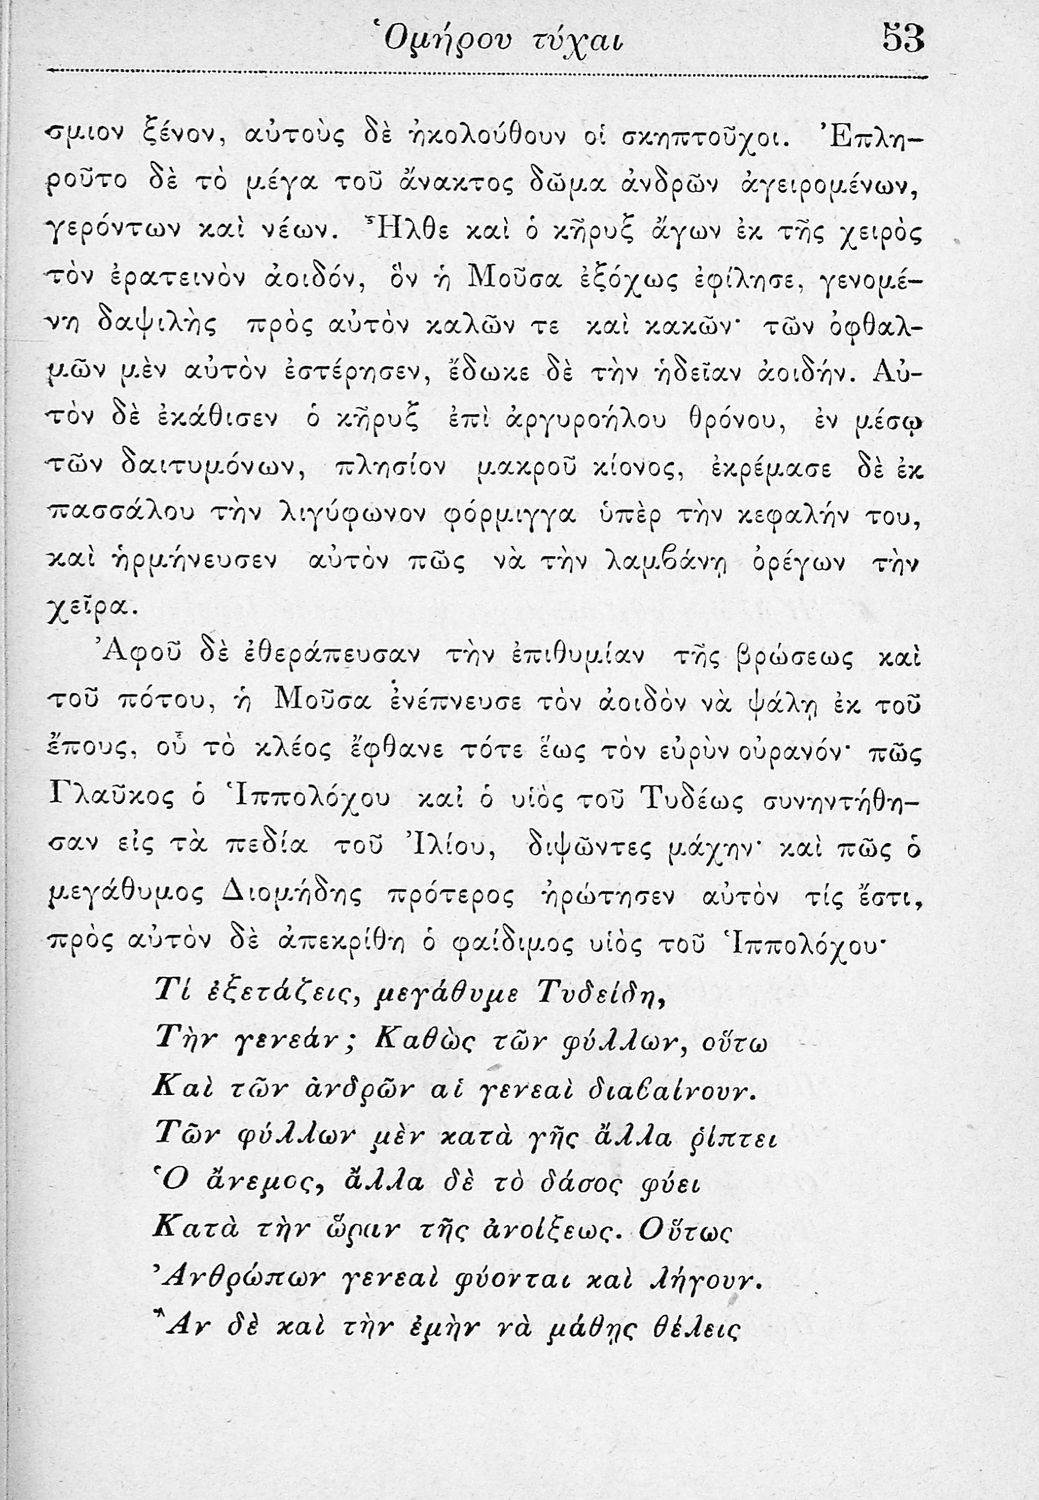 Ὁμήρου τύχαι 53
σμιον ξένον, αὐτοὺς δὲ ἠκολούθουν οἱ σκηπτοῦχοι. Ἐπλη-
ροῦτο δὲ τὸ μέγα τοῦ ἄνακτος δῶμα ἀνδρῶν ἀγειρομένων,
γερόντων καὶ νέων. Ἦλθε καὶ ὁ κῆρυξ ἄγων ἐκ τῆς χειρὸς
τὸν ἐρατεινὸν ἀοιδόν, ὃν ἡ Μοῦσα ἐξόχως ἐφίλησε, γενομέ-
νη δαψιλὴς πρὸς αὐτὸν καλῶν τε καὶ κακῶν· τῶν ὀφθαλ-
μῶν μὲν αὐτὸν ἐστέρησεν, ἔδωκε δὲ τὴν ἡδεῖαν ἀοιδήν. Αὐ-
τὸν δὲ ἐκάθισεν ὁ κῆρυξ ἐπὶ ἀργυροήλου θρόνου, ἐν μέσῳ
τῶν δαιτυμόνων, πλησίον μακροῦ κίονος, ἐκρέμασε δὲ ἐκ
πασσάλου τὴν λιγύφωνον φόρμιγγα ὑπὲρ τὴν κεφαλήν του,
καὶ ἡρμήνευσεν αὐτὸν πῶς νὰ τὴν λαμβάνῃ ὀρέγων τὴν
χεῖρα.
Ἀφοῦ δὲ ἐθεράπευσαν τὴν ἐπιθυμίαν τῆς βρώσεως καὶ
τοῦ πότου, ἡ Μοῦσα ἐνέπνευσε τὸν ἀοιδὸν νὰ ψάλῃ ἐκ τοῦ
ἔπους, οὗ τὸ κλέος ἔφθανε τότε ἕως τὸν εὐρὺν οὐρανόν· πῶς
Γλαῦκος ὁ Ἱππολόχου καὶ ὁ υἱὸς τοῦ Τυδέως συνηντήθη-
σαν εἰς τὰ πεδία τοῦ Ἰλίου, διψῶντες μάχην· καὶ πῶς ὁ
μεγάθυμος Διομήδης πρότερος ἠρώτησεν αὐτὸν τίς ἔστι,
πρὸς αὐτὸν δὲ ἀπεκρίθη ὁ φαίδιμος υἱὸς τοῦ Ἱππολόχου·
Τί ἐξετάζεις, μεγάθυμε Τυδείδη,
Τὴν γενεάν; Καθὼς τῶν φύλλων, οὕτω
Καὶ τῶν ἀνδρῶν αἱ γενεαὶ διαβαίνουν.
Τῶν φύλλων μὲν κατὰ γῆς ἄλλα ῥίπτει
Ὁ ἄνεμος, ἄλλα δὲ τὸ δάσος φύει
Κατὰ τὴν ὥραν τῆς ἀνοίξεως. Οὕτως
Ἀνθρώπων γενεαὶ φύονται καὶ λήγουν.
Ἂν δὲ καὶ τὴν ἐμὴν νὰ μάθῃς θέλεις